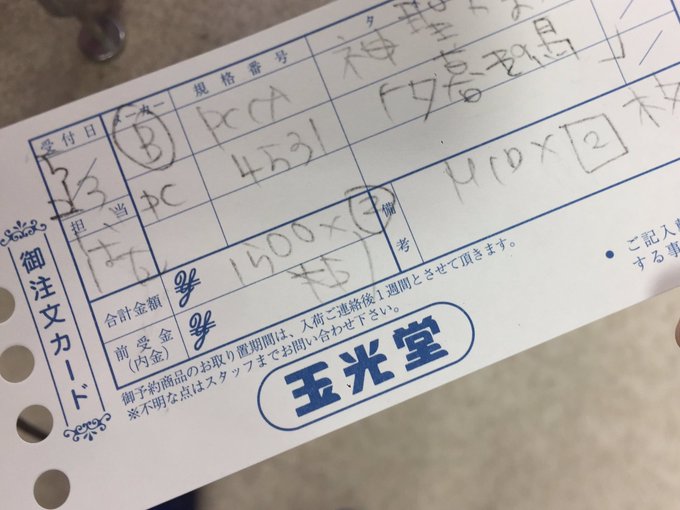 御注文カード
受付日
メーカー
規格番号
タ
5/23
B
PCCA
神聖
担当
PC
4531
「夕暮れ鳥
備考
MCD×2枚
合計金額
1500×2
前受金
(内金)
御予約商品のお取り置期間は、入荷ご連絡後1週間とさせて頂きます。
※不明な点はスタッフまでお問い合わせ下さい。
● ご記入
する事
玉光堂